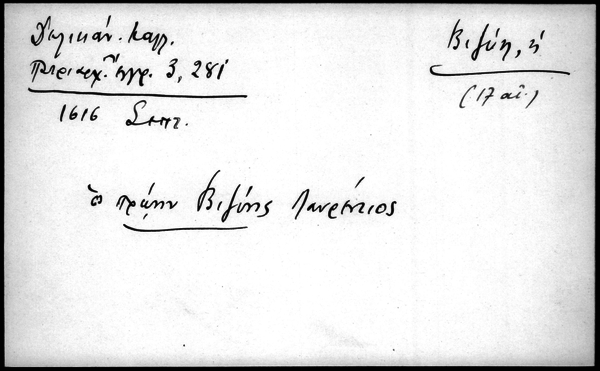 Δελικάν. Καλλ.
Πατριαρχ. ἔγγρ. 3, 281
1616 Σεπτ.
Βιζύη, ἡ
(17 αἰ.)
ὁ πρώην Βιζύης Λαυρέντιος